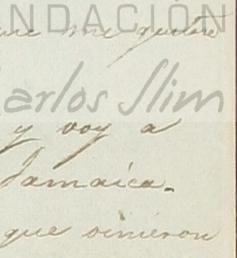 NDACIÓN
me gusta
Carlos Slim
y voy a
Jamaica.
que vinieron